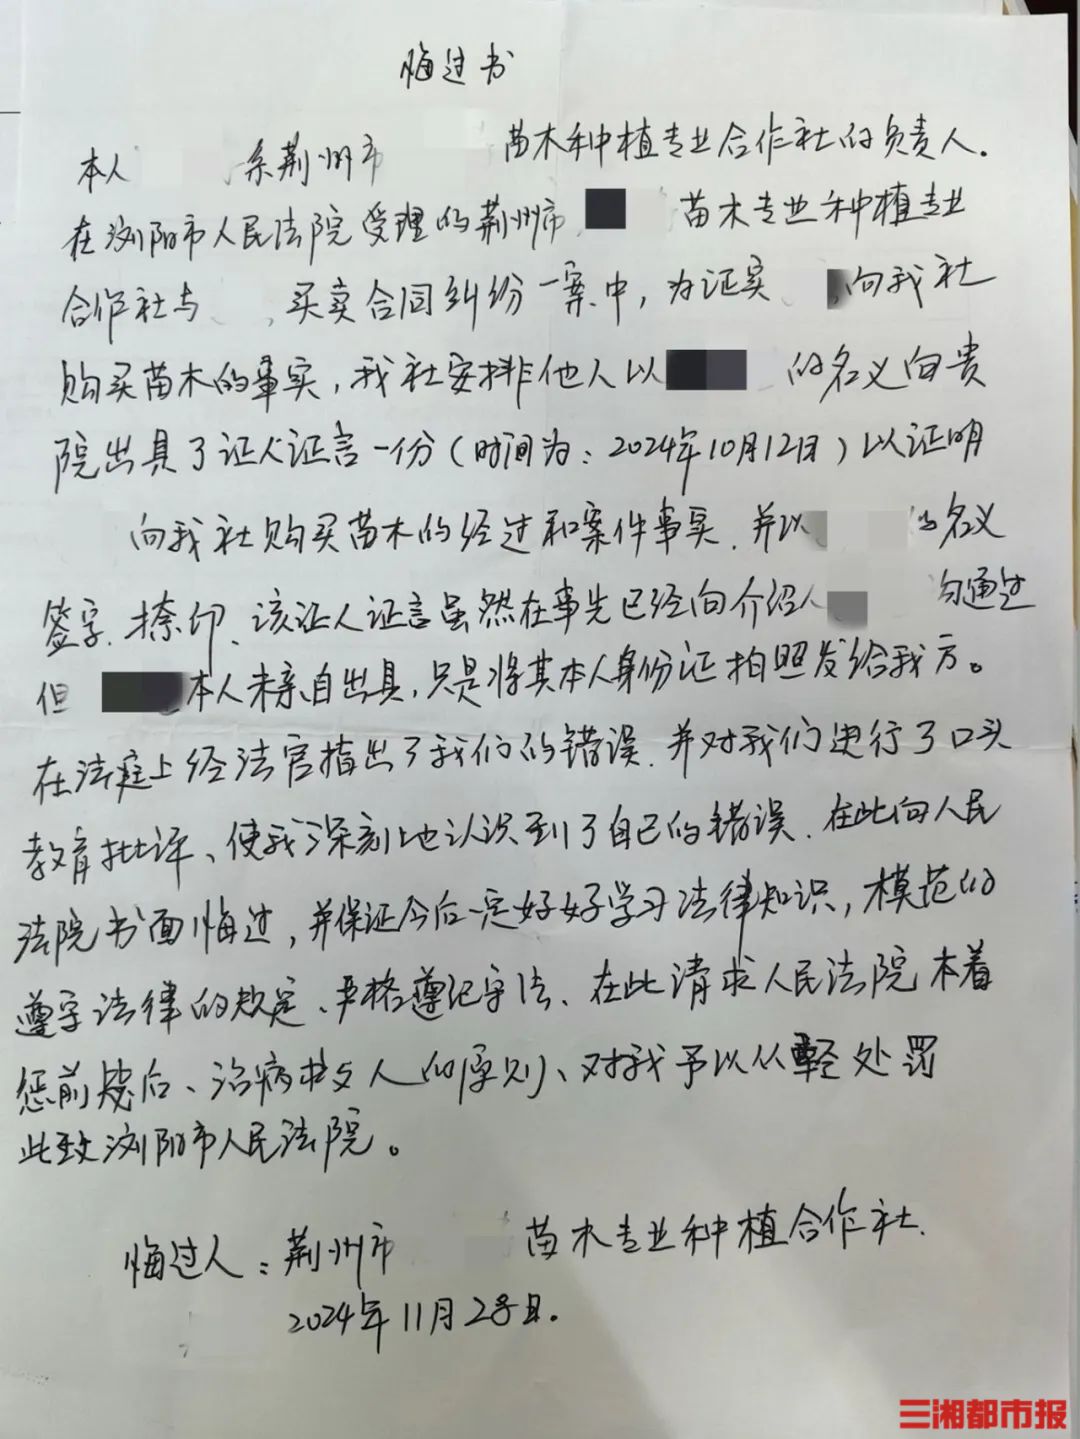 悔过书
本人 系荆州市 苗木种植专业合作社的负责人.
在浏阳市人民法院受理的荆州市 苗木专业种植专业
合作社与 买卖合同纠纷一案中，为证实 向我社
购买苗木的事实，我社安排他人以 的名义向贵
院出具了证人证言一份（时间为：2024年10月12日）以证明
向我社购买苗木的经过和案件事实、并以 的名义
签字、捺印、该证人证言虽然在事先已经向介绍人 沟通过
但 本人未亲自出具，只是将其本人身份证拍照发给我方。
在法庭上经法官指出了我们的错误、并对我们进行了口头
教育批评、使我深刻地认识到了自己的错误、在此向人民
法院书面悔过，并保证今后一定好好学习法律知识，模范的
遵守法律的规定、严格遵纪守法、在此请求人民法院本着
惩前毖后、治病救人的原则、对我予以从轻处罚
此致浏阳市人民法院。
悔过人：荆州市 苗木专业种植合作社.
2024年11月28日.
三湘都市报